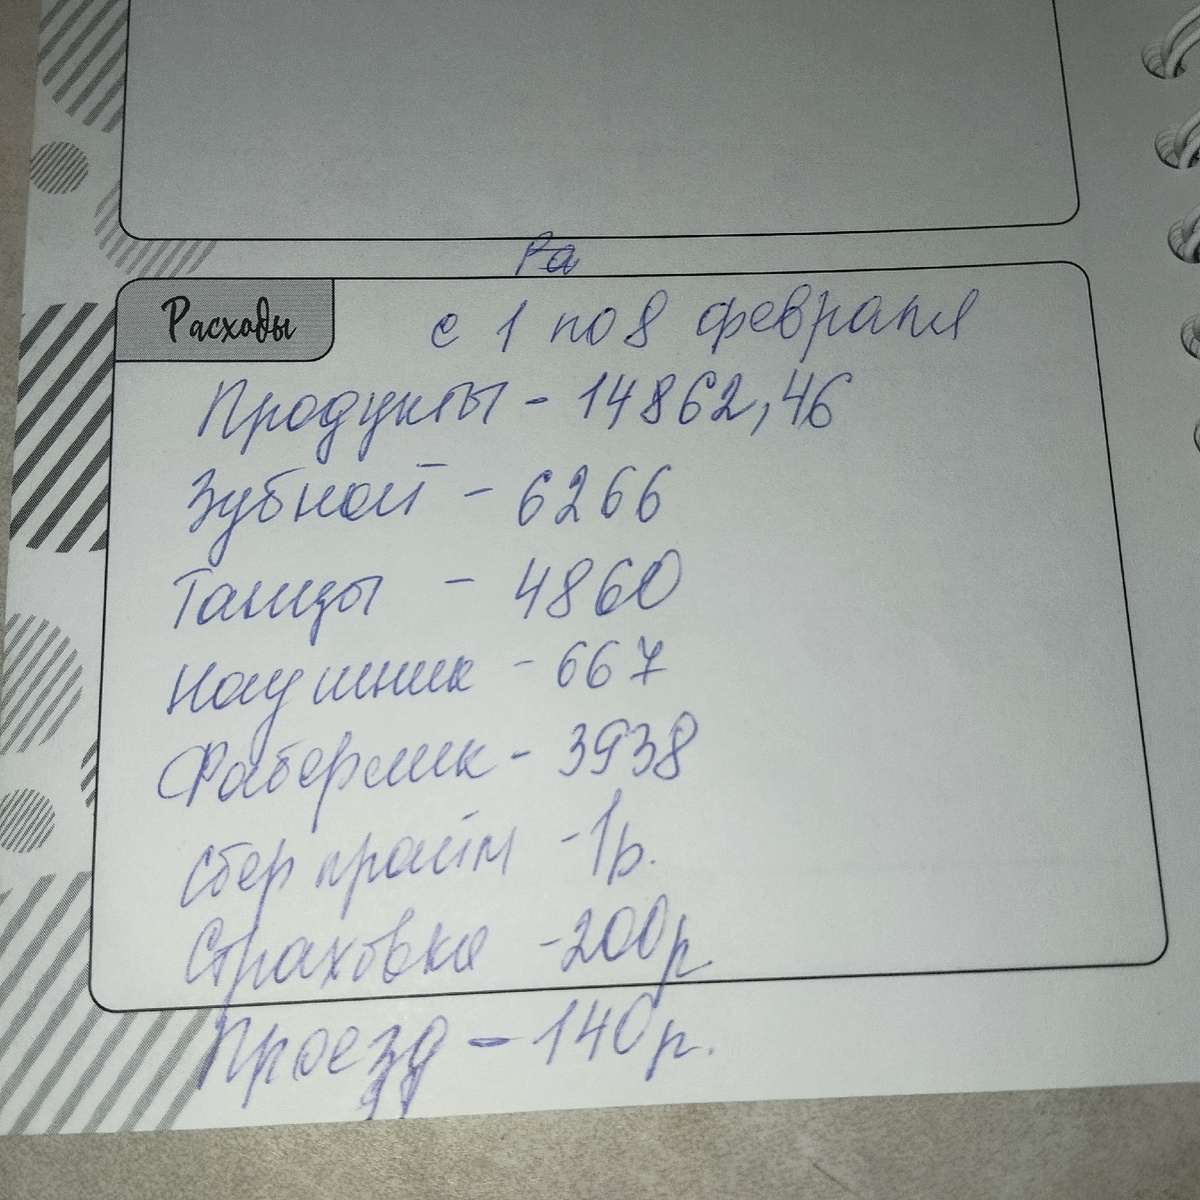 Ра
Расходы с 1 по 8 февраля
Продукты - 14862,46
Зубной - 6266
Танцы - 4860
Наушник - 667
Фаберлик - 3938
Сбер прайм - 1р.
Страховка - 200р.
Проезд - 140р.